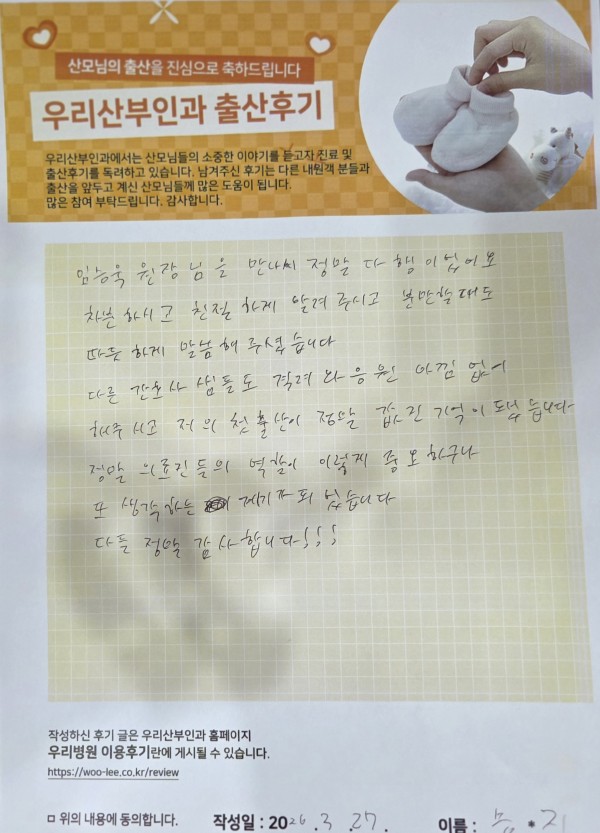 산모님의 출산을 진심으로 축하드립니다
우리산부인과 출산후기
우리산부인과에서는 산모님들의 소중한 이야기를 듣고자 진료 및
출산후기를 독려하고 있습니다. 남겨주신 후기는 다른 내원객 분들과
출산을 앞두고 계신 산모님들께 많은 도움이 됩니다.
많은 참여 부탁드립니다. 감사합니다.
임능욱 원장님을 만나서 정말 다행이었어요
차분하시고 친절하게 알려주시고 분만할때도
따듯하게 말씀해주셨습니다
다른 간호사 쌤들도 격려와 응원 아낌없이
해주시고 저의 첫출산이 정말 값진 기억이 됐습니다
정말 의료진들의 역할이 이렇게 중요하구나
또 생각하는 계기가 되었습니다
다들 정말 감사합니다!!!
작성하신 후기 글은 우리산부인과 홈페이지
우리병원 이용후기란에 게시될 수 있습니다.
https://woo-lee.co.kr/review
□ 위의 내용에 동의합니다. 작성일 : 2026.3.27. 이름 : * 지